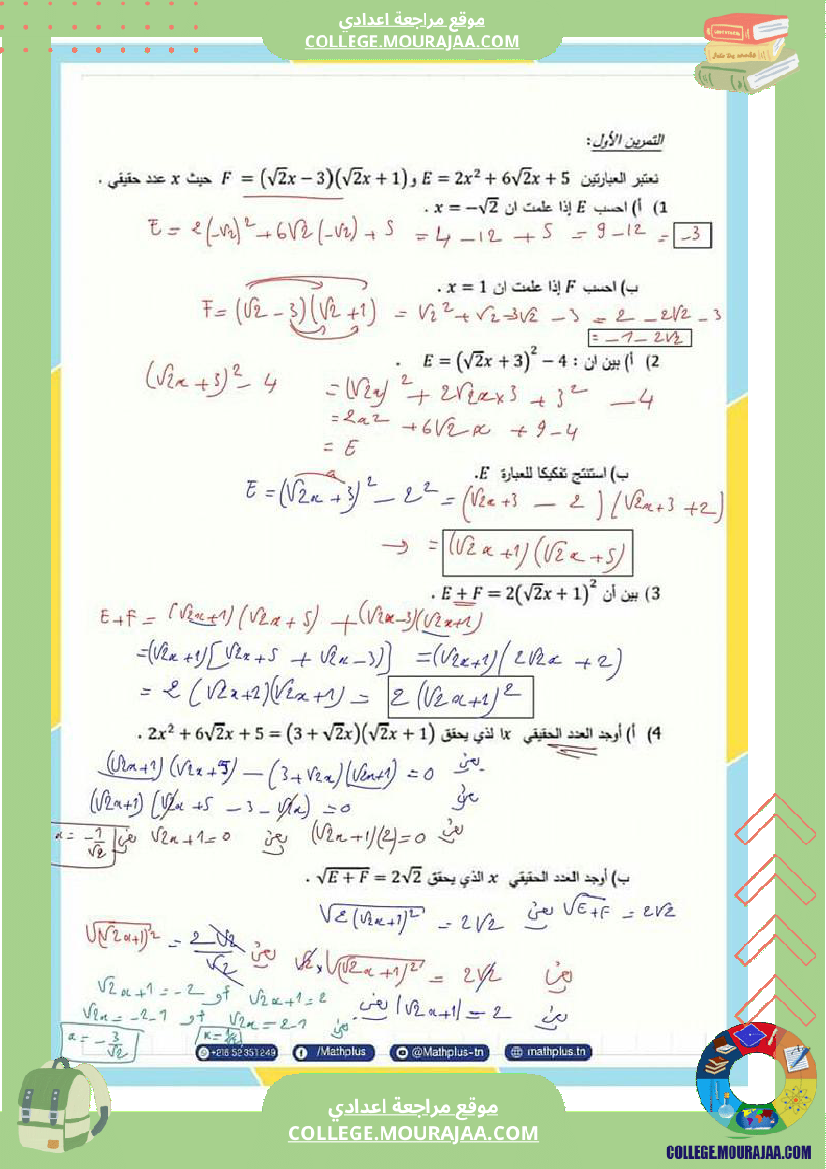 موقع مراجعة اعدادي
COLLEGE.MOURAJAA.COM
التمرين الأول :
نعتبر العبارتين E = 2x² + 6√2x + 5 و F = (√2x − 3)(√2x + 1) حيث x عدد حقيقي .
1) أ) احسب E إذا علمت ان x = −√2 .
E = 2(-√2)² + 6√2(-√2) + 5 = 4 - 12 + 5 = 9 - 12 = -3
ب) احسب F إذا علمت ان x = 1 .
F = (√2 - 3)(√2 + 1) = √2² + √2 - 3√2 - 3 = 2 - 2√2 - 3
= -1 - 2√2
2) أ) بين ان : E = (√2x + 3)² − 4 .
(√2x + 3)² - 4 = (√2x)² + 2√2x×3 + 3² - 4
= 2x² + 6√2x + 9 - 4
= E
ب) استنتج تفكيكا للعبارة E.
E = (√2x + 3)² - 2² = (√2x + 3 - 2)(√2x + 3 + 2)
→ = (√2x + 1)(√2x + 5)
3) بين أن E + F = 2(√2x + 1)² .
E + F = (√2x + 1)(√2x + 5) + (√2x - 3)(√2x + 1)
= (√2x + 1)[√2x + 5 + √2x - 3)] = (√2x + 1)(2√2x + 2)
= 2(√2x + 2)(√2x + 1) = 2(√2x + 1)²
4) أ) أوجد العدد الحقيقي x ا لذي يحقق 2x² + 6√2x + 5 = (3 + √2x)(√2x + 1) .
يعني (√2x + 1)(√2x + 5) - (3 + √2x)(√2x + 1) = 0
يعني (√2x + 1)(√2x + 5 - 3 - √2x) = 0
يعني (√2x + 1)(2) = 0 يعني √2x + 1 = 0 يعني x = -1/√2
ب) أوجد العدد الحقيقي x الذي يحقق √E + F = 2√2 .
√E+F = 2√2 يعني √2(√2x + 1)² = 2√2
يعني √2 × √(√2x + 1)² = 2√2 يعني √(√2x + 1)² = 2√2/√2
يعني |√2x + 1| = 2 يعني √2x + 1 = 2 أو √2x + 1 = -2
يعني √2x = 2 - 1 أو √2x = -2 - 1
x = 1/√2 x = -3/√2
+216 52 351 249 /Mathplus @Mathplus-tn mathplus.tn
موقع مراجعة اعدادي
COLLEGE.MOURAJAA.COM
COLLEGE.MOURAJAA.COM